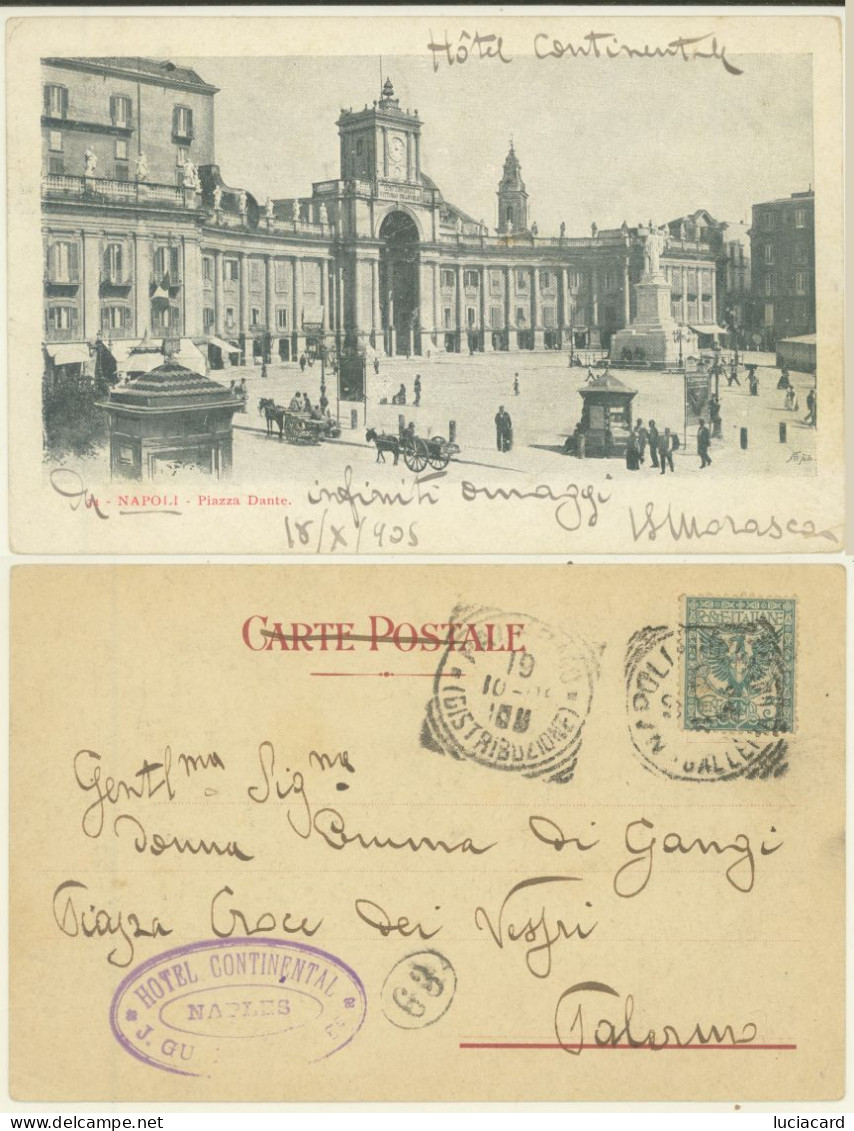 Hôtel Continental
Da 
- NAPOLI - Piazza Dante.
infiniti omaggi
18/X/905
CARTE POSTALE
19
10
(DISTRIBUZIONE)
POSTE ITALIANE
NAPOLI
Gentl.ma Sig.na
Donna Emma di Gangi
Piazza Croce dei Vespri
Palermo
HOTEL CONTINENTAL
NAPLES
J. GU
63
luciacard